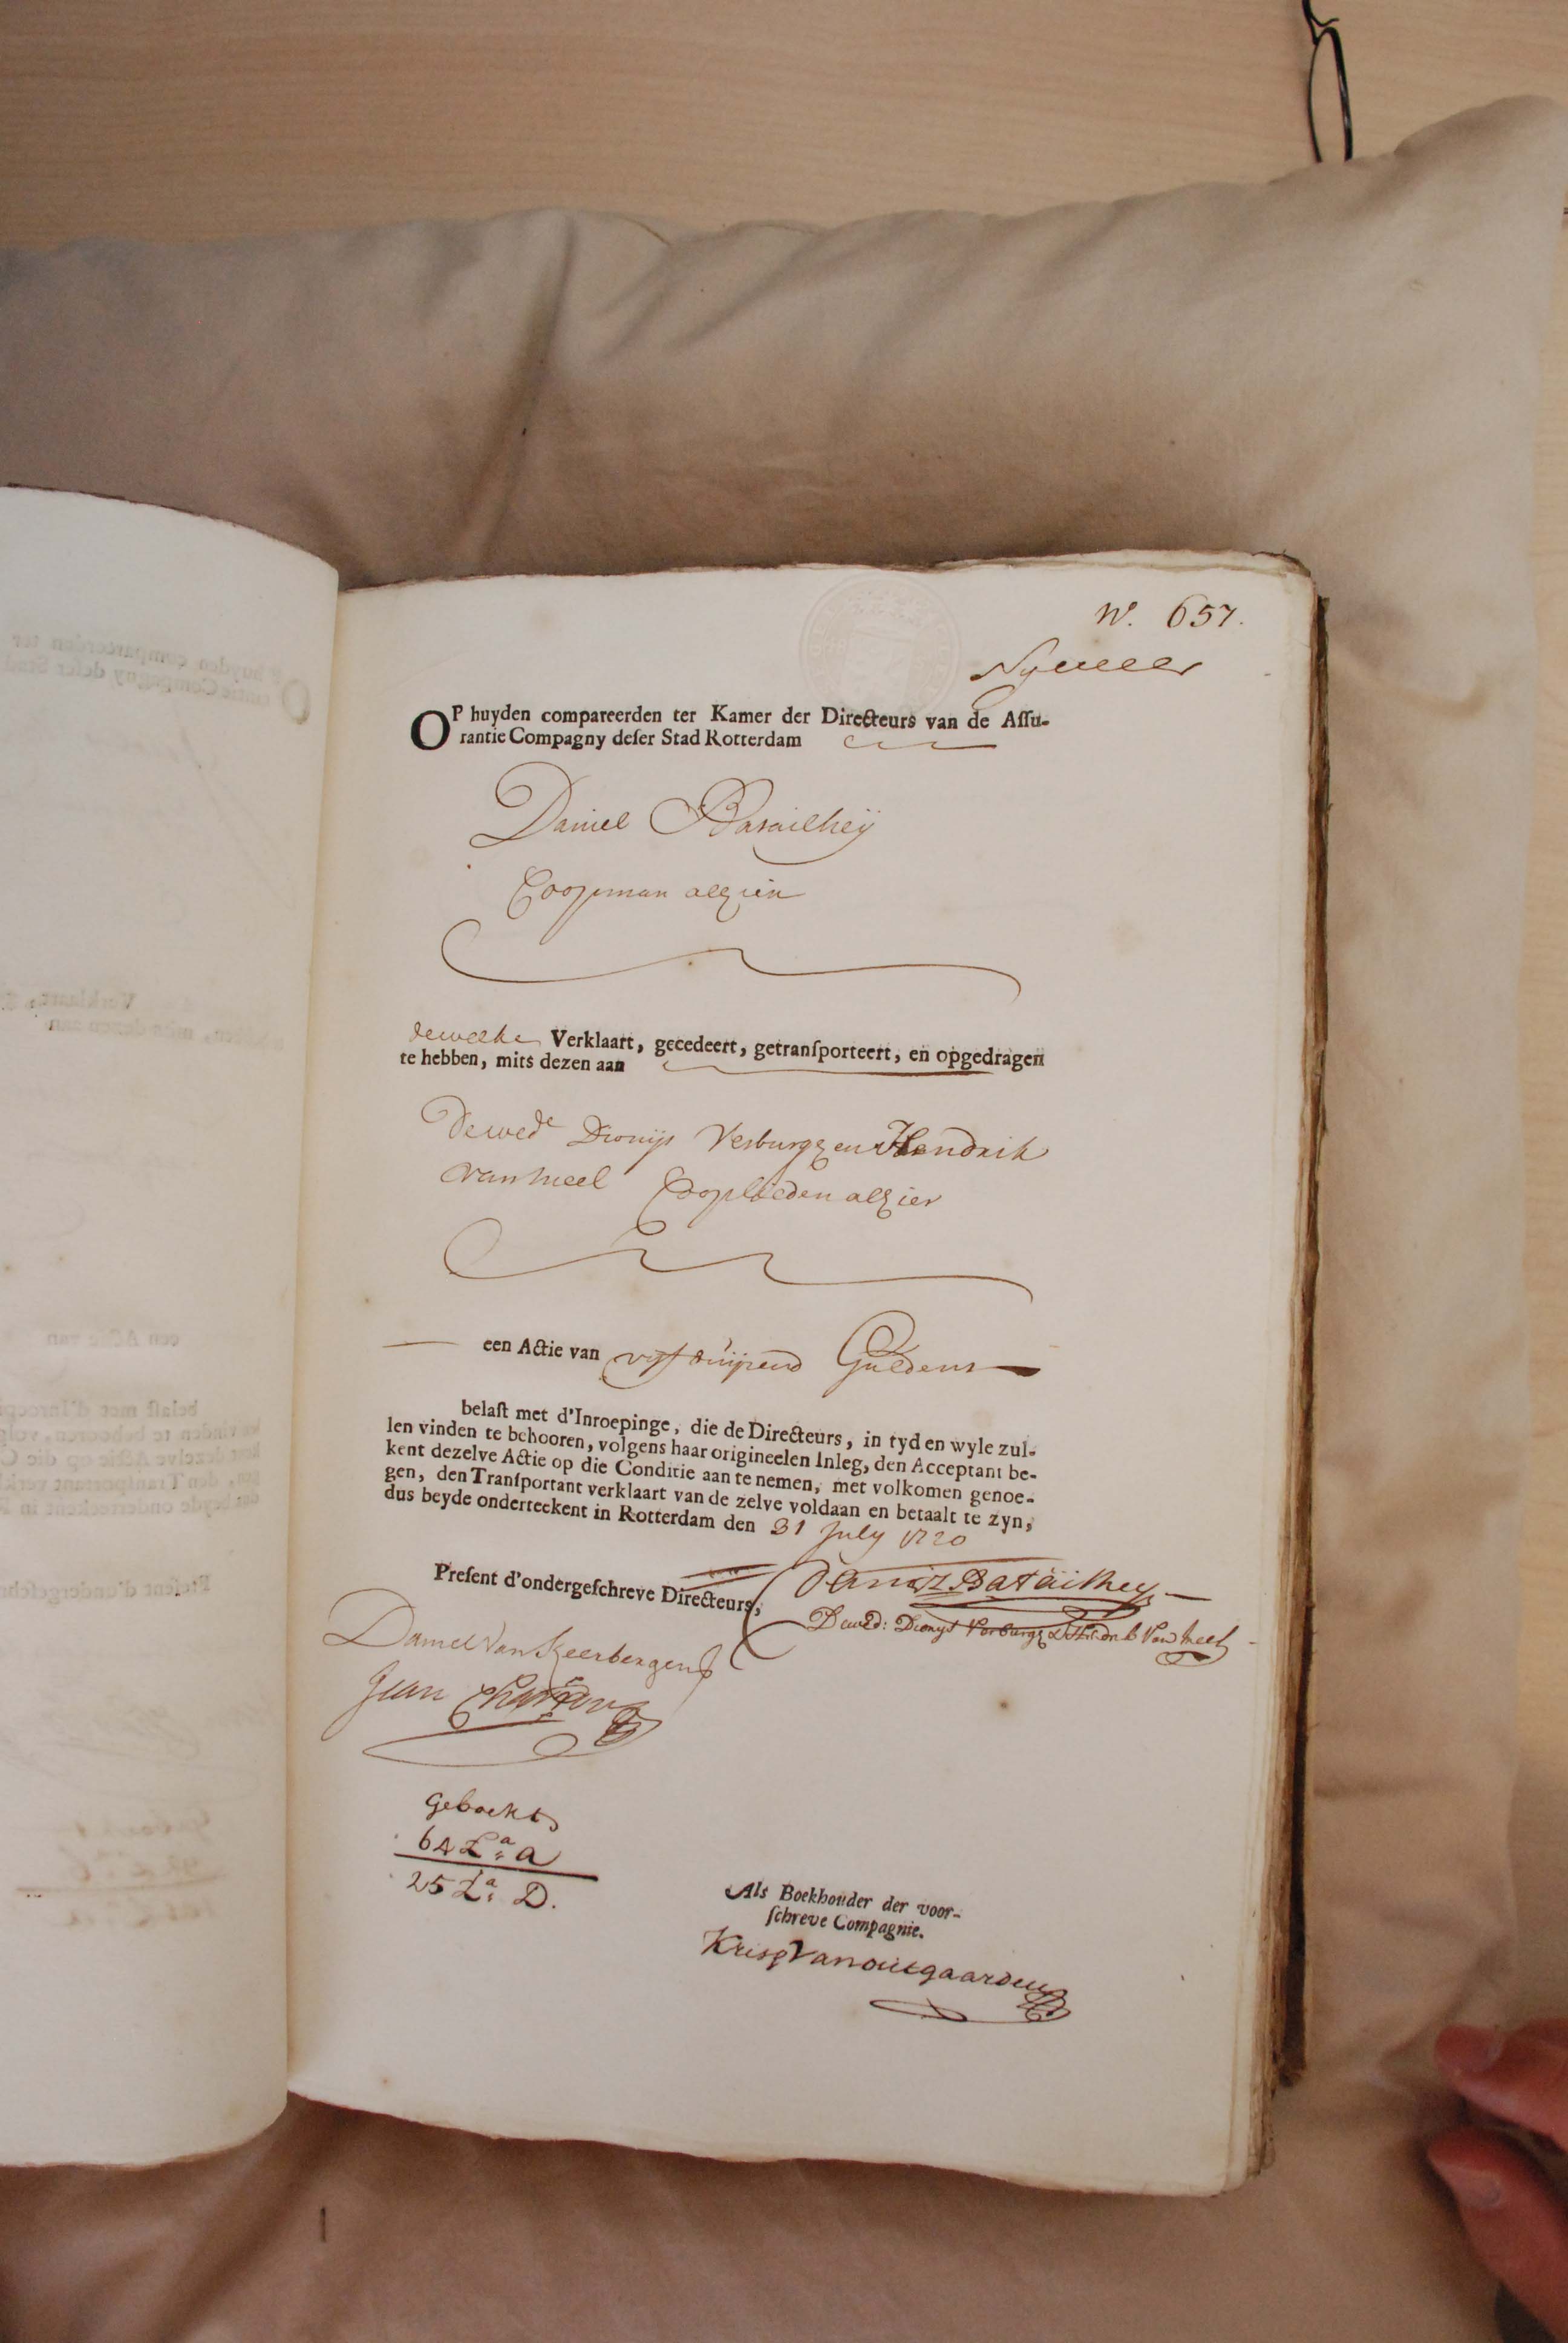 N°. 657.
OP huyden compareerden ter Kamer der Directeurs van de Assu-
rantie Compagny deser Stad Rotterdam
Daniel Batailheÿ
Coopman alhier
dewelke Verklaart, gecedeert, getransporteert, en opgedragen
te hebben, mits dezen aan
De wed.e Dionijs Verburgh en Hendrik
van Meel Cooplieden alhier
een Actie van vijf duijsend Guldens
belast met d'Inroepinge, die de Directeurs, in tyd en wyle zul-
len vinden te behooren, volgens haar origineelen Inleg, den Acceptant be-
kent dezelve Actie op die Conditie aan te nemen, met volkomen genoe-
gen, den Transportant verklaart van de zelve voldaan en betaalt te zyn,
dus beyde onderteekent in Rotterdam den 31 July 1720
Present d'ondergeschreve Directeurs,
Daniel Batailhey
De wed: Dionys Verburgh & Hendrik Van Meel
Daniel Van Keerbergen
Jean
Geboekt
64 L.a A
25 L.a D.
Als Boekhouder der voor-
schreve Compagnie.
Krisp Vanoutgaarden